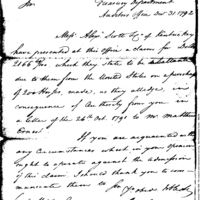 Sir
Treasury Department
Auditors Office Dec 31 1792
Messrs Alexr Scott & Co of
have presented at this Office a claim for Dolls
2166 which they state to be
due to them from the United States on a purchase
of 200 Horses made, as they alledge, in
consequence of an Authority from you in
a letter of the 24th Oct 1791 to Mr Matthew
Ernest
If you are acquainted with
any Circumstances which in your opinion
ought to operate against the admission
of this claim, I should thank you to com-
municate them to